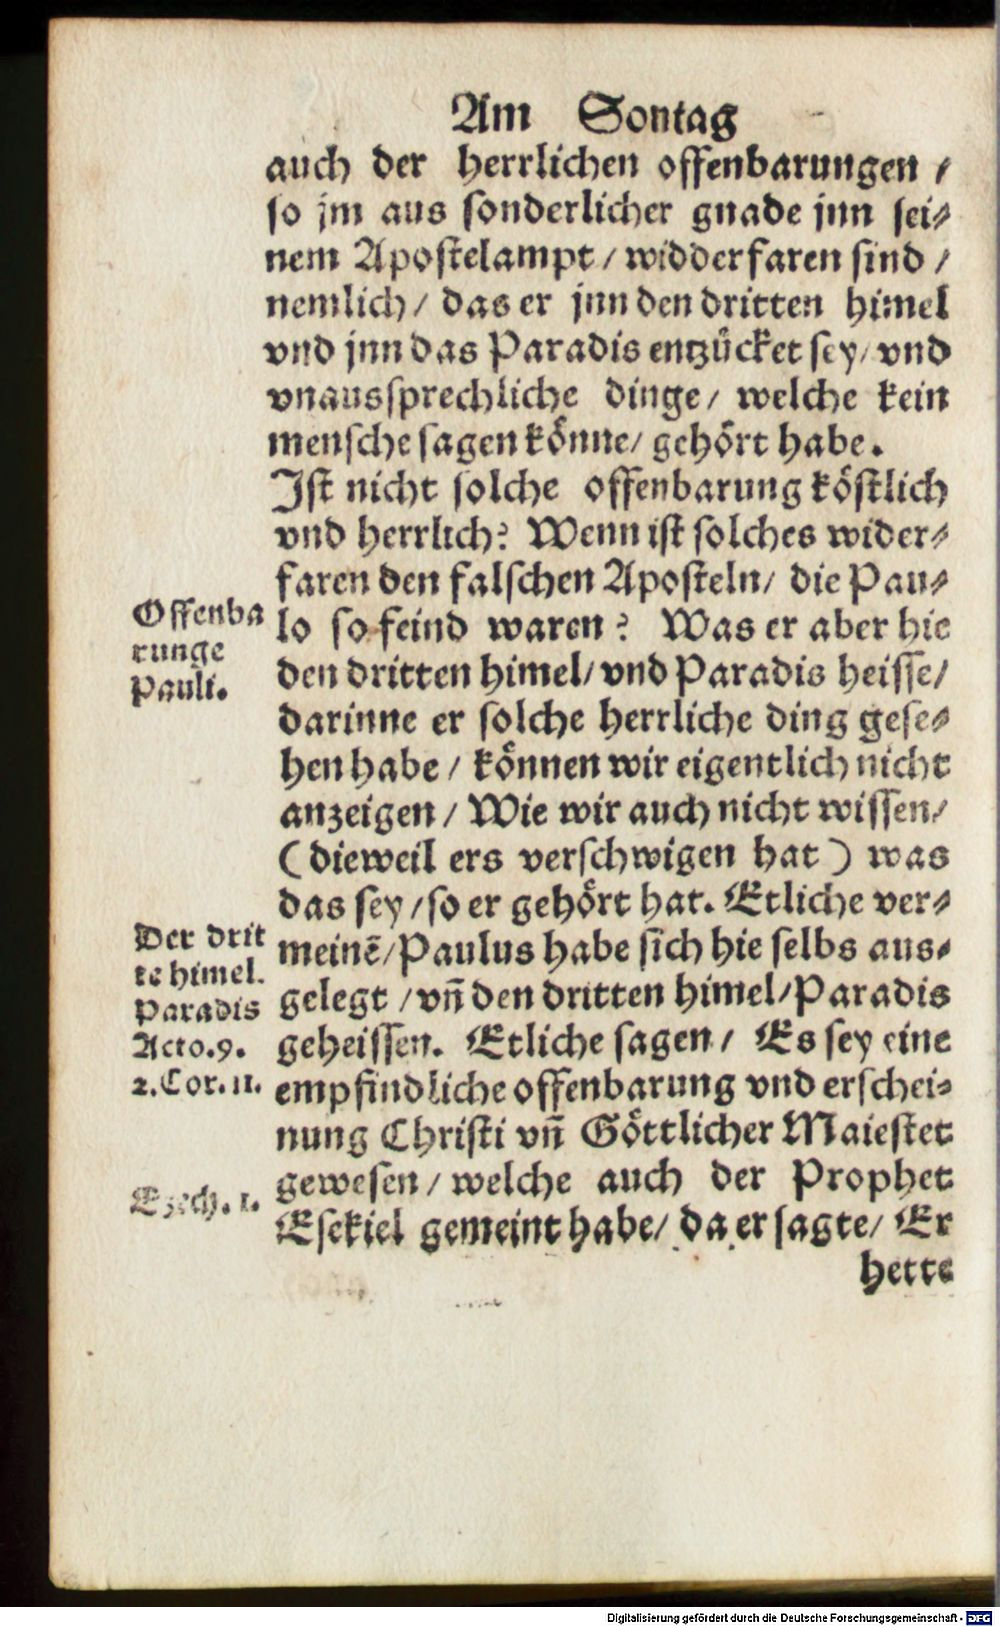 Am Sontag
auch der herrlichen offenbarungen /
so jm aus sonderlicher gnade jnn sei⸗
nem Apostelampt / widderfaren sind /
nemlich / das er jnn den dritten himel
vnd jnn das Paradis entzücket sey / vnd
vnaussprechliche dinge / welche kein
mensche sagen könne / gehört habe.
Ist nicht solche offenbarung köstlich
vnd herrlich? Wenn ist solches wider⸗
faren den falschen Aposteln / die Pau⸗
lo so feind waren? Was er aber hie
den dritten himel / vnd Paradis heisse /
darinne er solche herrliche ding gese⸗
hen habe / können wir eigentlich nicht
anzeigen / Wie wir auch nicht wissen /
(dieweil ers verschwigen hat) was
das sey / so er gehört hat. Etliche ver⸗
meinē / Paulus habe sich hie selbs aus⸗
gelegt / vn̄ den dritten himel / Paradis
geheissen. Etliche sagen / Es sey eine
empfindliche offenbarung vnd erschei⸗
nung Christi vn̄ Göttlicher Maiestet
gewesen / welche auch der Prophet
Esekiel gemeint habe / da er sagte / Er
hette
Offenba
runge
Pauli.
Der drit
te himel.
Paradis
Acto.9.
2.Cor.11.
Ezech.1.
Digitalisierung gefördert durch die Deutsche Forschungsgemeinschaft - DFG